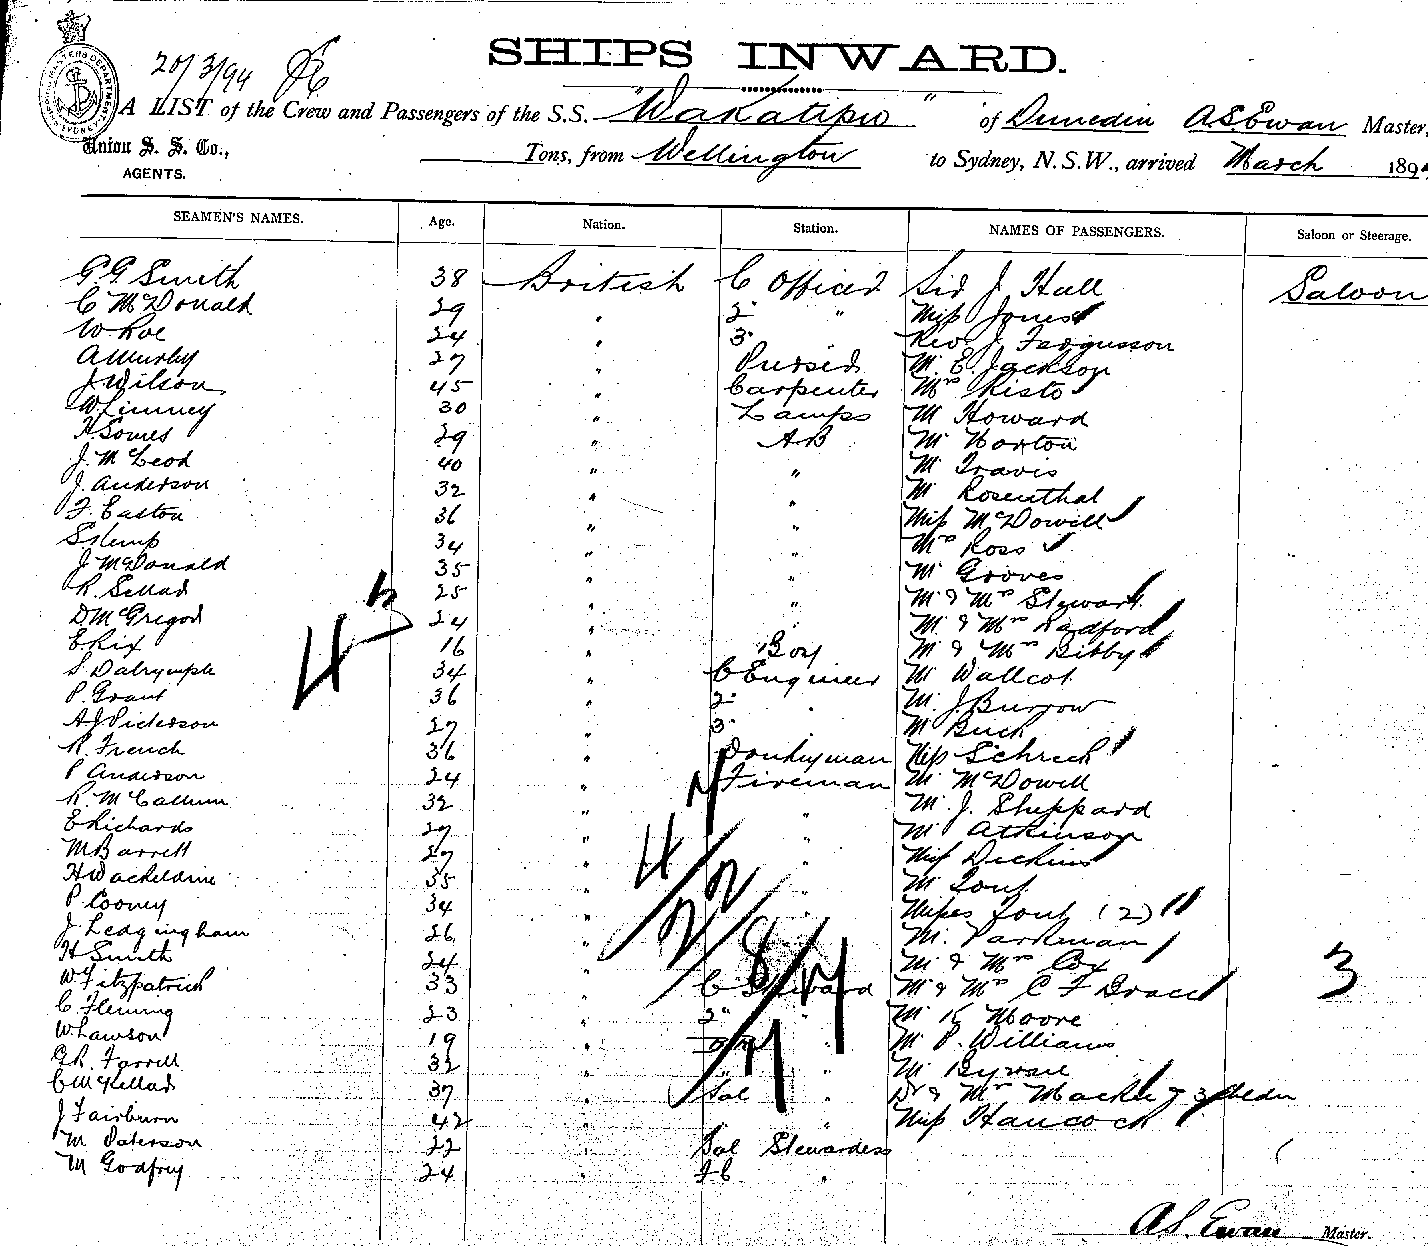 SHIPS INWARD.
20/3/94
A LIST of the Crew and Passengers of the S.S. "Wakatipu" of Dunedin A.S. Ewan Master,
Union S. S. Co., Tons, from Wellington to Sydney, N.S.W., arrived March 189
AGENTS.
SEAMEN'S NAMES. Age. Nation. Station. NAMES OF PASSENGERS. Saloon or Steerage.
G G Smith 38 British C Officer Sir J Hall Saloon
C McDonald 29 " 2 " Miss Jones
W Roe 24 " 3 Rev J. Fergusson
A Murby 27 " Purser Mr E. Jackson
J Wilson 45 " Carpenter Mrs Risto
W Linney 30 " Lamps Mr Howard
H Somes 29 " AB Mr Horton
J. McLeod 40 " " Mr Travis
J. Anderson 32 " " Mr Rosenthal
F. Easton 36 " " Miss McDowell
34 " " Mrs Ross
J McDonald 35 " " Mr Groves
R. Sellar 25 " " Mr & Mrs Stewart
D McGregor 24 " Mr & Mrs Radford
E Rix 16 " Boy Mr & Mrs Bibby
S. Dalrymple 34 " C Engineer Mr Wallcot
P. Grant 36 " 2 " Mr J. Burrow
A J Pickerson 27 " 3 Mr Buck
R. French 36 " Donkeyman Miss Schreck
P Anderson 24 " Fireman Mr McDowell
R. McCallum 32 " " Mr J. Sheppard
E Richards 27 " " Mr Atkinson
M Barrett 27 " " Miss Dickins
H Wackeldine 35 " " Mr
P Cooney 34 " " Misses (2)
J. Ledgingham 26 " Mr Parkman
H Smith 24 " Mr & Mrs Cox
W Fitzpatrick 33 " C Steward Mr & Mrs C F Grace
C Fleming 23 " 2 " Mr K Moore
W Lawson 19 " " Mr P. Williams
G R. Farrell 32 " " Mr
C McKellar 37 " Sal " Dr & Mrs & 3
J Fairburn 42 " " Miss Hancock
M Paterson 22 " Sal Stewardess
M Godfrey 24 " "
43
3
A.S. Ewan Master.